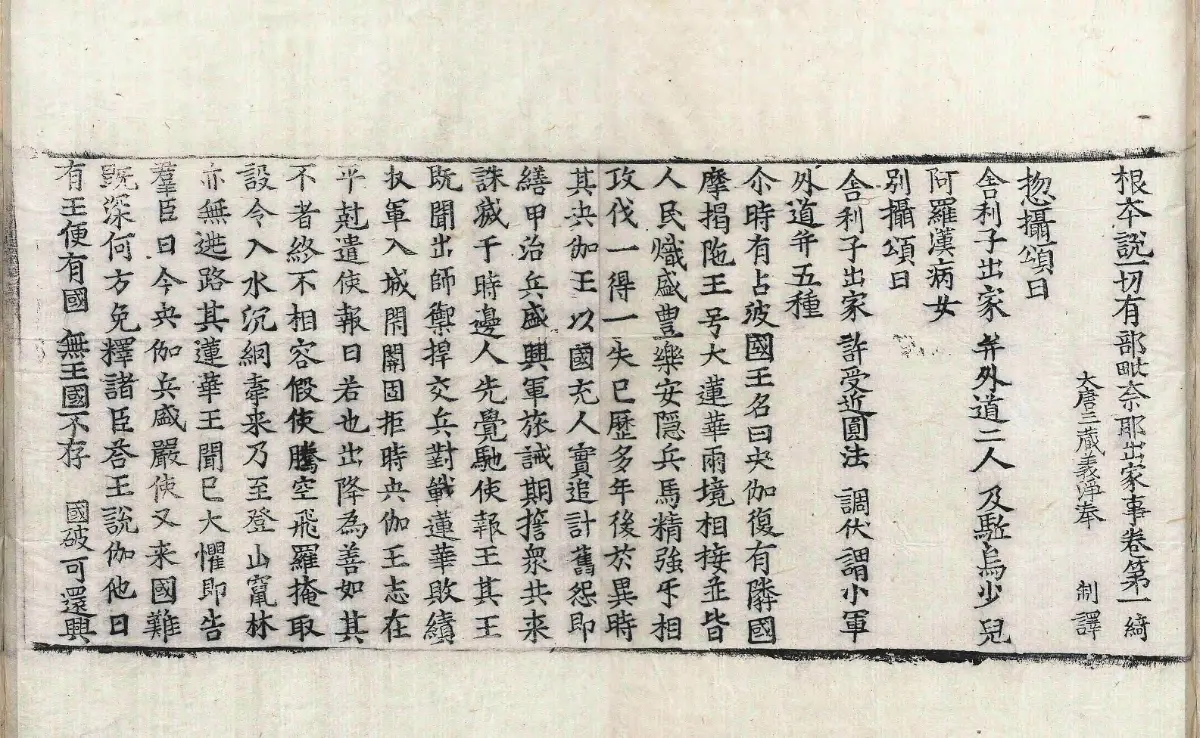 根本說一切有部毗奈耶出家事卷第一 綺
大唐三藏義淨奉 制譯
惣攝頌曰
舍利子出家 并外道二人 及駈烏少兒
阿羅漢病女
別攝頌曰
舍利子出家 許受近圓法 調伏謂小軍
外道并五種
尒時有占波國王名曰央伽復有隣國
摩揭陁王号大蓮華兩境相接並皆
人民熾盛豊樂安隱兵馬精強㸦相
攻伐一得一失已歷多年後於異時
其央伽王以國充人實追計舊怨即
繕甲治兵盛興軍旅誡期擔衆共来
誅滅于時邊人先覺馳使報王其王
既聞出師禦捍交兵對戰蓮華敗績
収軍入城閇關固拒時央伽王志在
平尅遣使報曰若也出降為善如其
不者終不相容假使騰空飛羅掩取
設令入水沉網牽来乃至登山竄林
亦無逃路其蓮華王聞已大懼即告
羣臣曰今央伽兵盛嚴使又来國難
既深何方免釋諸臣荅王說伽他曰
有王便有國 無王國不存 國破可還興